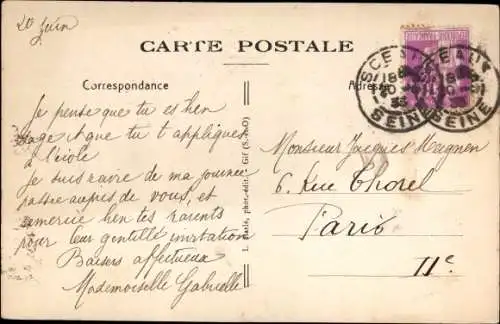 20 Juin
CARTE POSTALE
Correspondance
Adresse
SCEAUX
SEINE
SCEAUX
SEINE
Je pense que tu es bien
sage et que tu t'appliques
à l'école
Je suis ravie de ma journée
passée auprès de vous, et
remercie bien tes parents
pour leur gentille invitation
Baisers affectueux
Mademoiselle Gabrielle
phot.-édit., Gif (S.-&-O.)
Monsieur Jacques Magnen
6. Rue Thorel
Paris
IIe